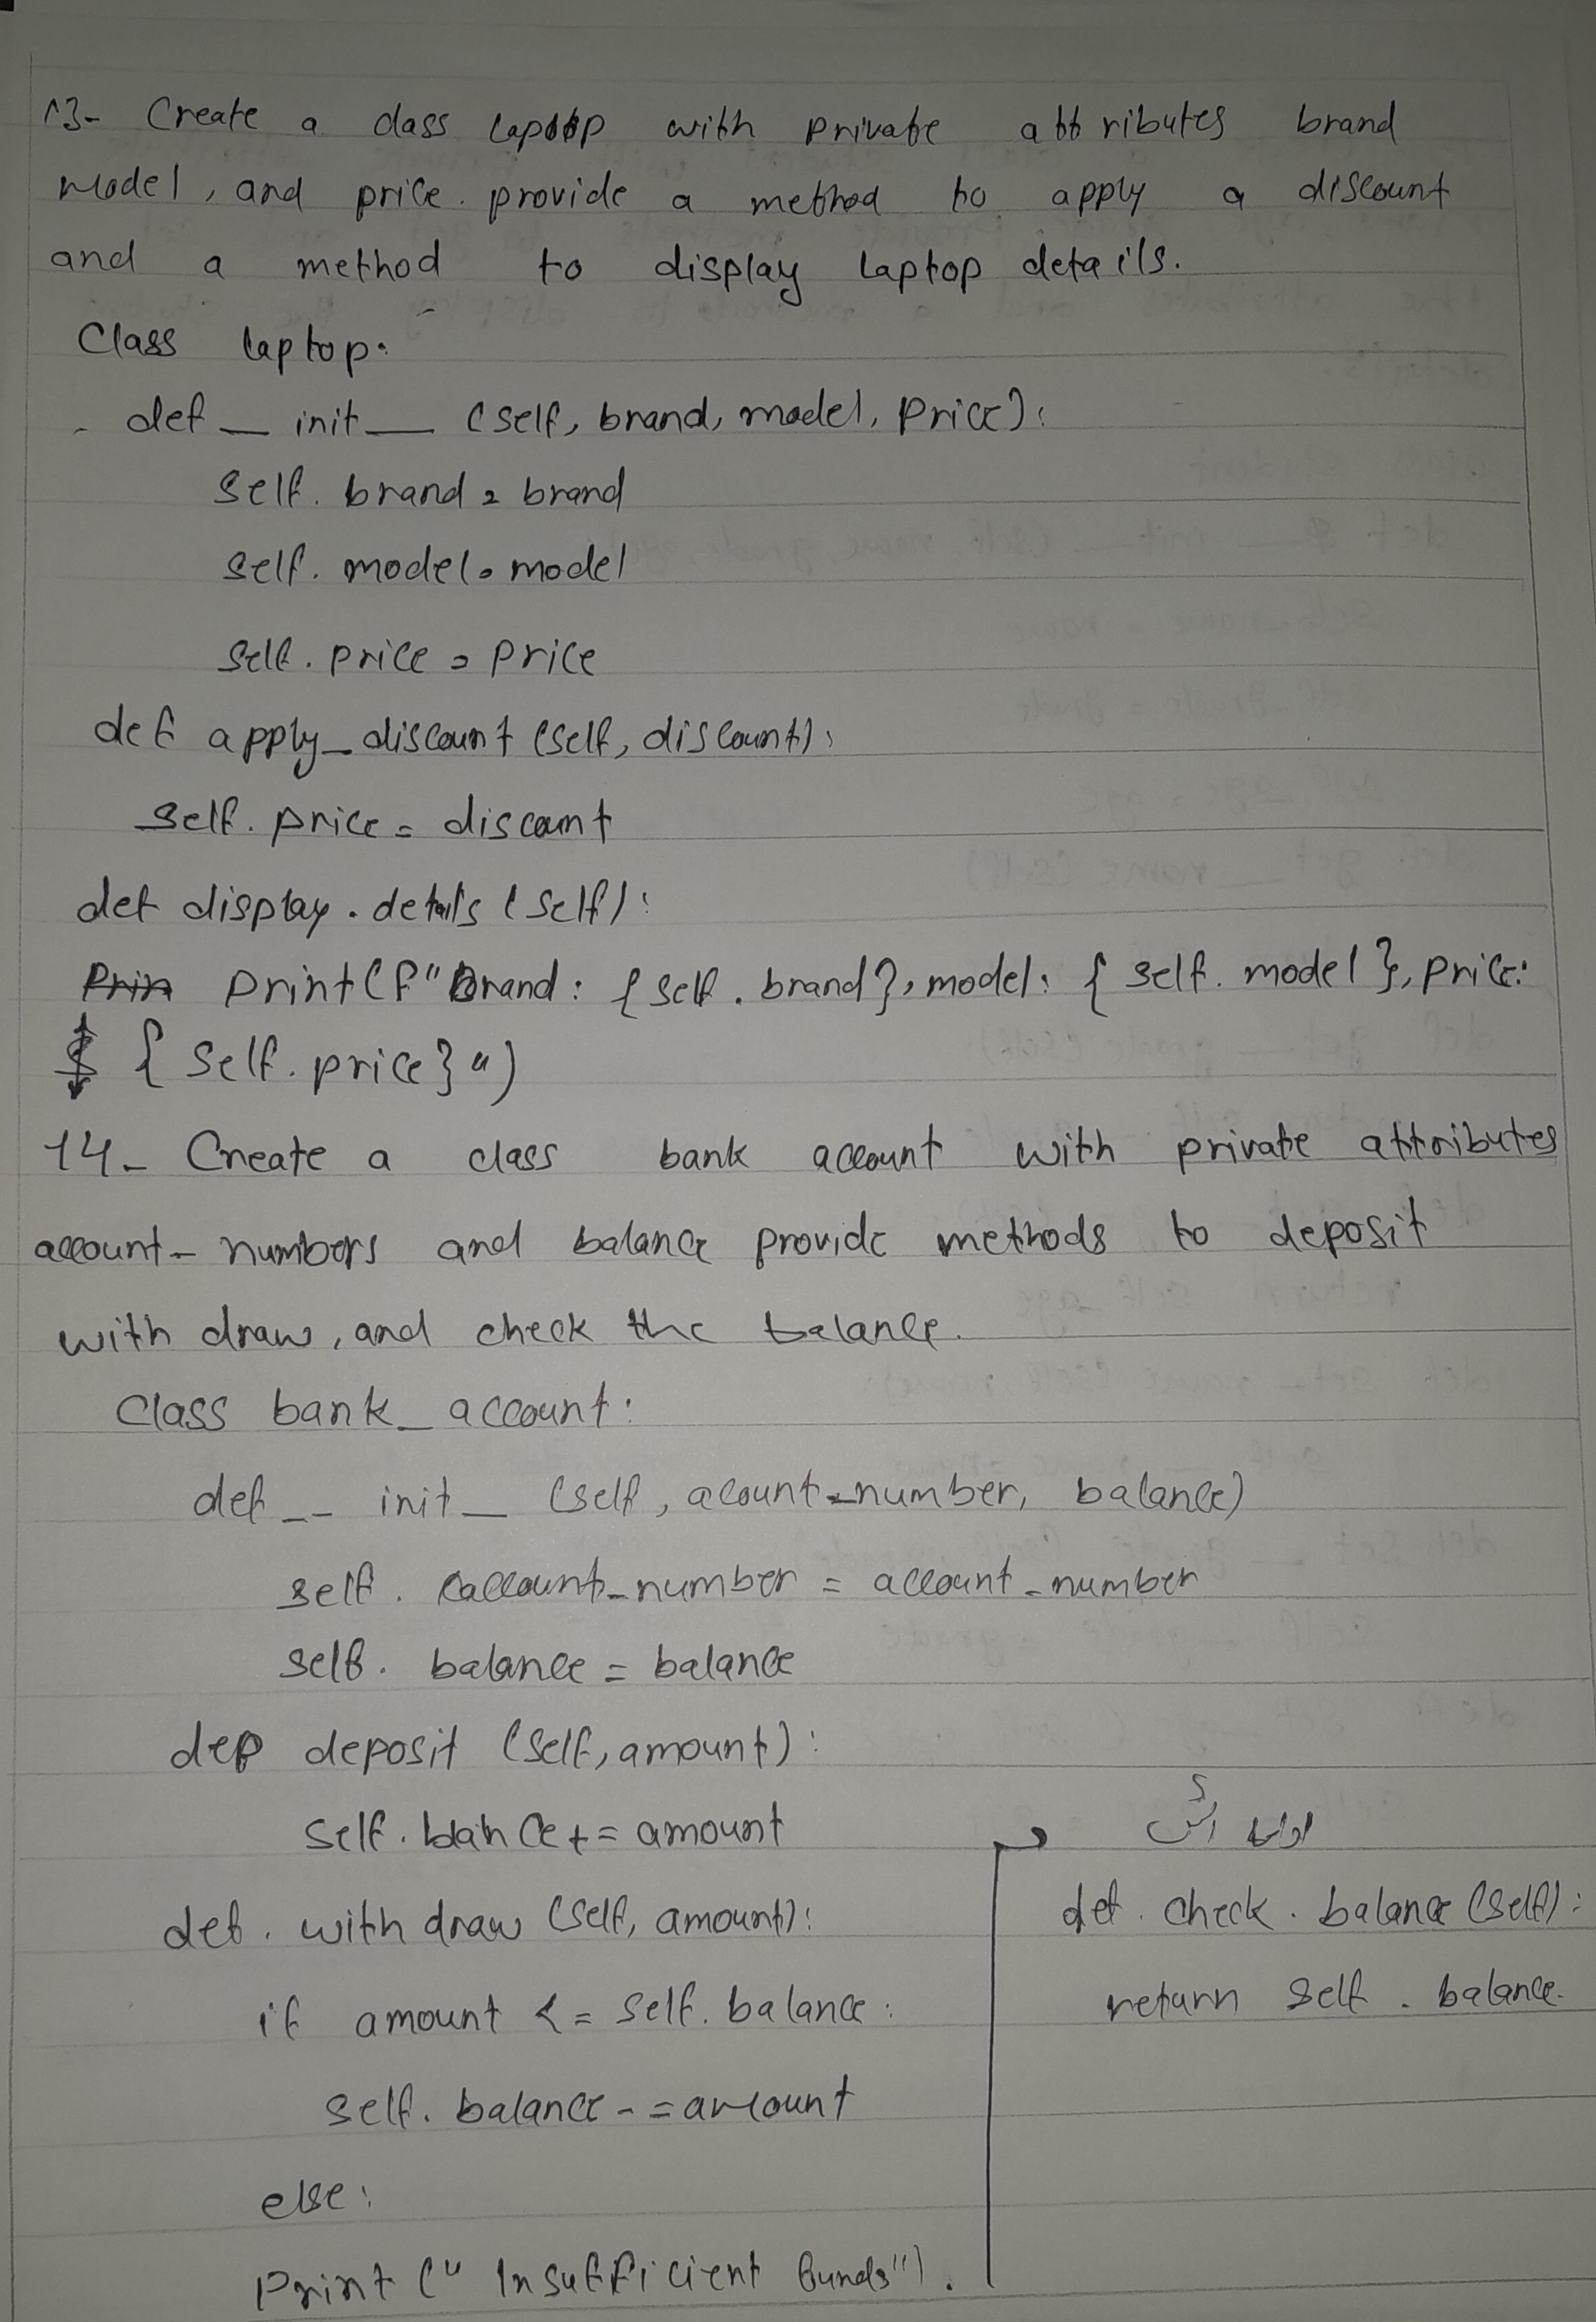 13- Create a class laptop with private attributes brand
model, and price. provide a method to apply a discount
and a method to display laptop details.
Class laptop:
def __ init __ (self, brand, model, price):
self. brand = brand
self. model = model
self. price = price
def apply_discount (self, discount):
self. price = discount
def display . details (self):
print(f"Brand: {self . brand}, model: { self. model }, price:
$ { self. price}")
14- Create a class bank account with private attributes
account- numbers and balance provide methods to deposit
with draw, and check the balance.
Class bank_ account:
def __ init _ (self, acount_number, balance)
self. account_number = account_number
self. balance = balance
def deposit (self, amount):
self. blance += amount
def. with draw (self, amount):
if amount <= self. balance:
self. balance -= amount
else:
Print (" Insufficient funds").
def. check . balance (self):
return self . balance.